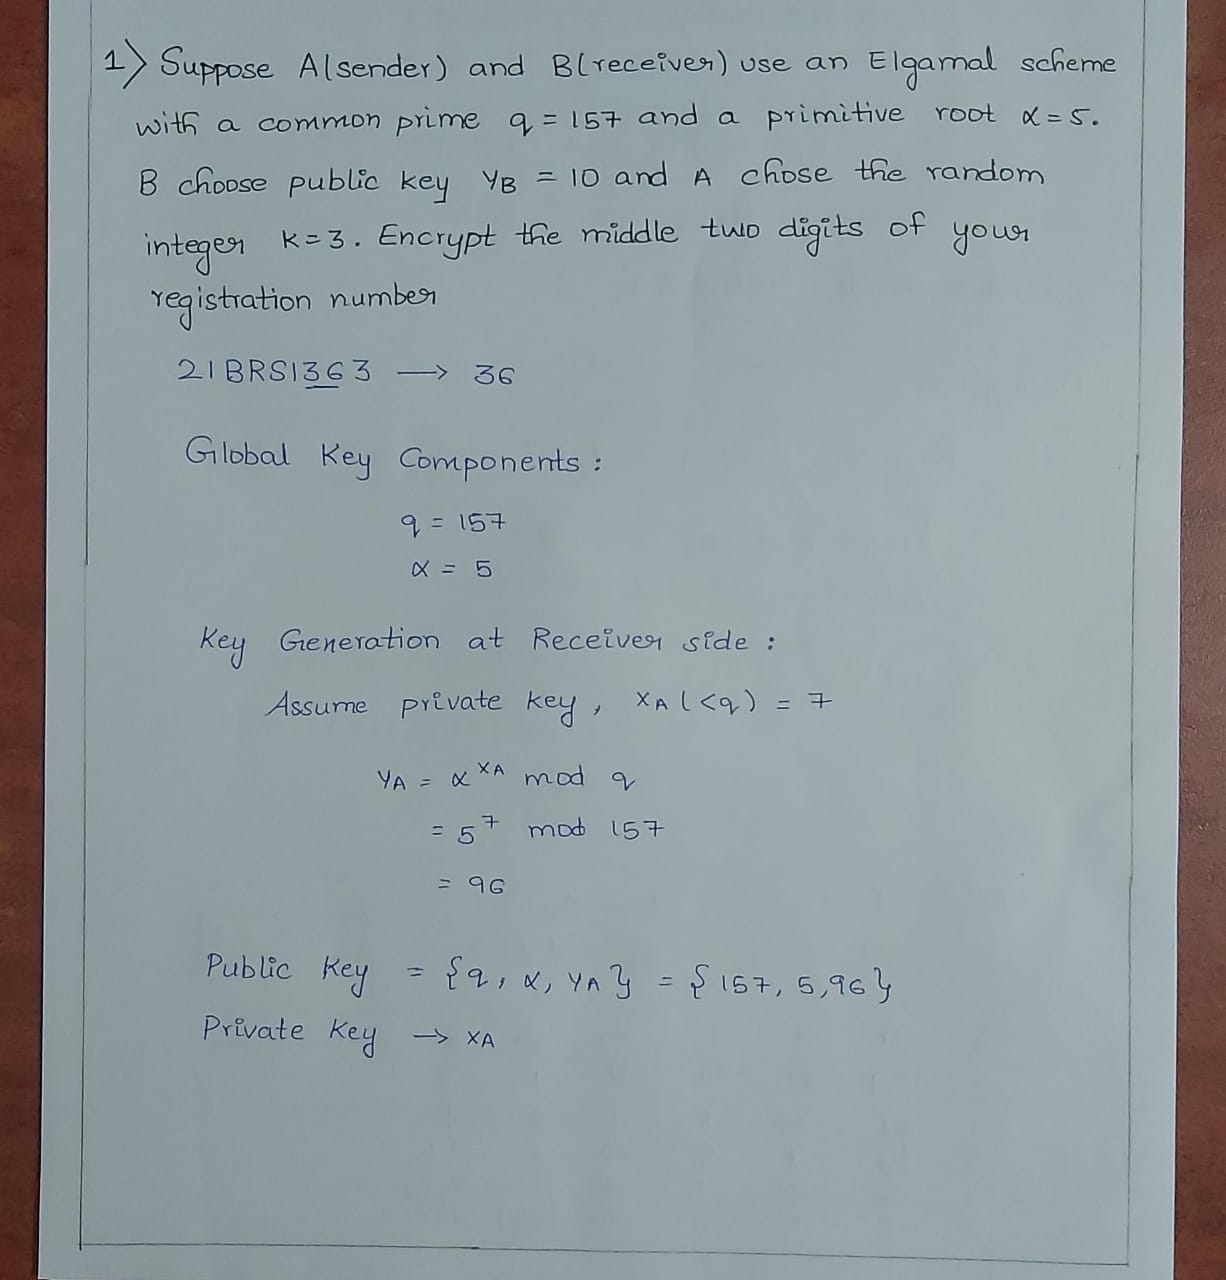 1) Suppose A(sender) and B(receiver) use an Elgamal scheme
with a common prime q = 157 and a primitive root α = 5.
B choose public key YB = 10 and A chose the random
integer k = 3. Encrypt the middle two digits of your
registration number
21BRS1363 → 36
Global Key Components :
q = 157
α = 5
Key Generation at Receiver side :
Assume private key, XA (<q) = 7
YA = α^XA mod q
= 5^7 mod 157
= 96
Public Key = {q, α, YA} = {157, 5, 96}
Private Key → XA